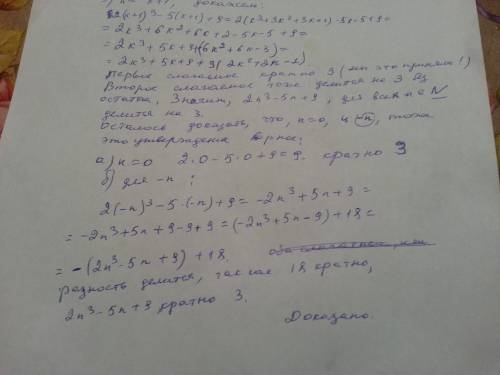 n = k+1, докажем:
2(k+1)³ - 5(k+1) + 9 = 2(k³+3k²+3k+1) - 5k - 5 + 9 =
= 2k³ + 6k² + 6k + 2 - 5k - 5 + 9 =
= 2k³ + 5k + 9 + (6k² + 6k - 3) =
= 2k³ + 5k + 9 + 3(2k² + 2k - 1)
Первое слагаемое кратно 3 (мы это приняли!)
Второе слагаемое тоже делится на 3 без
остатка, Значит, 2n³-5n+9, для всех n ∈ N
делится на 3.
Осталось доказать, что, n=0, и -n, тоже
это утверждение верно:
а) n=0 2·0-5·0+9=9. кратно 3
б) для -n :
2(-n)³-5·(-n)+9 = -2n³+5n+9 =
= -2n³+5n+9-9+9 = (-2n³+5n-9)+18 =
= -(2n³-5n+9)+18. оба слагаемых, или
разность делится, так как 18 кратно,
2n³-5n+9 кратно 3.
Доказано.